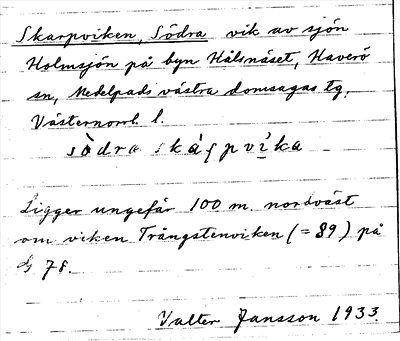 Skarpviken, Södra vik av sjön
Holmsjön på byn Hålsnäset, Haverö
sn, Medelpads västra domsagas tg,
Västernorrl. l.
södra skáʃpvìka
Ligger ungefär 100 m. nordväst
om viken Trångstenviken (= 89) på
78.
Valter Jansson 1933